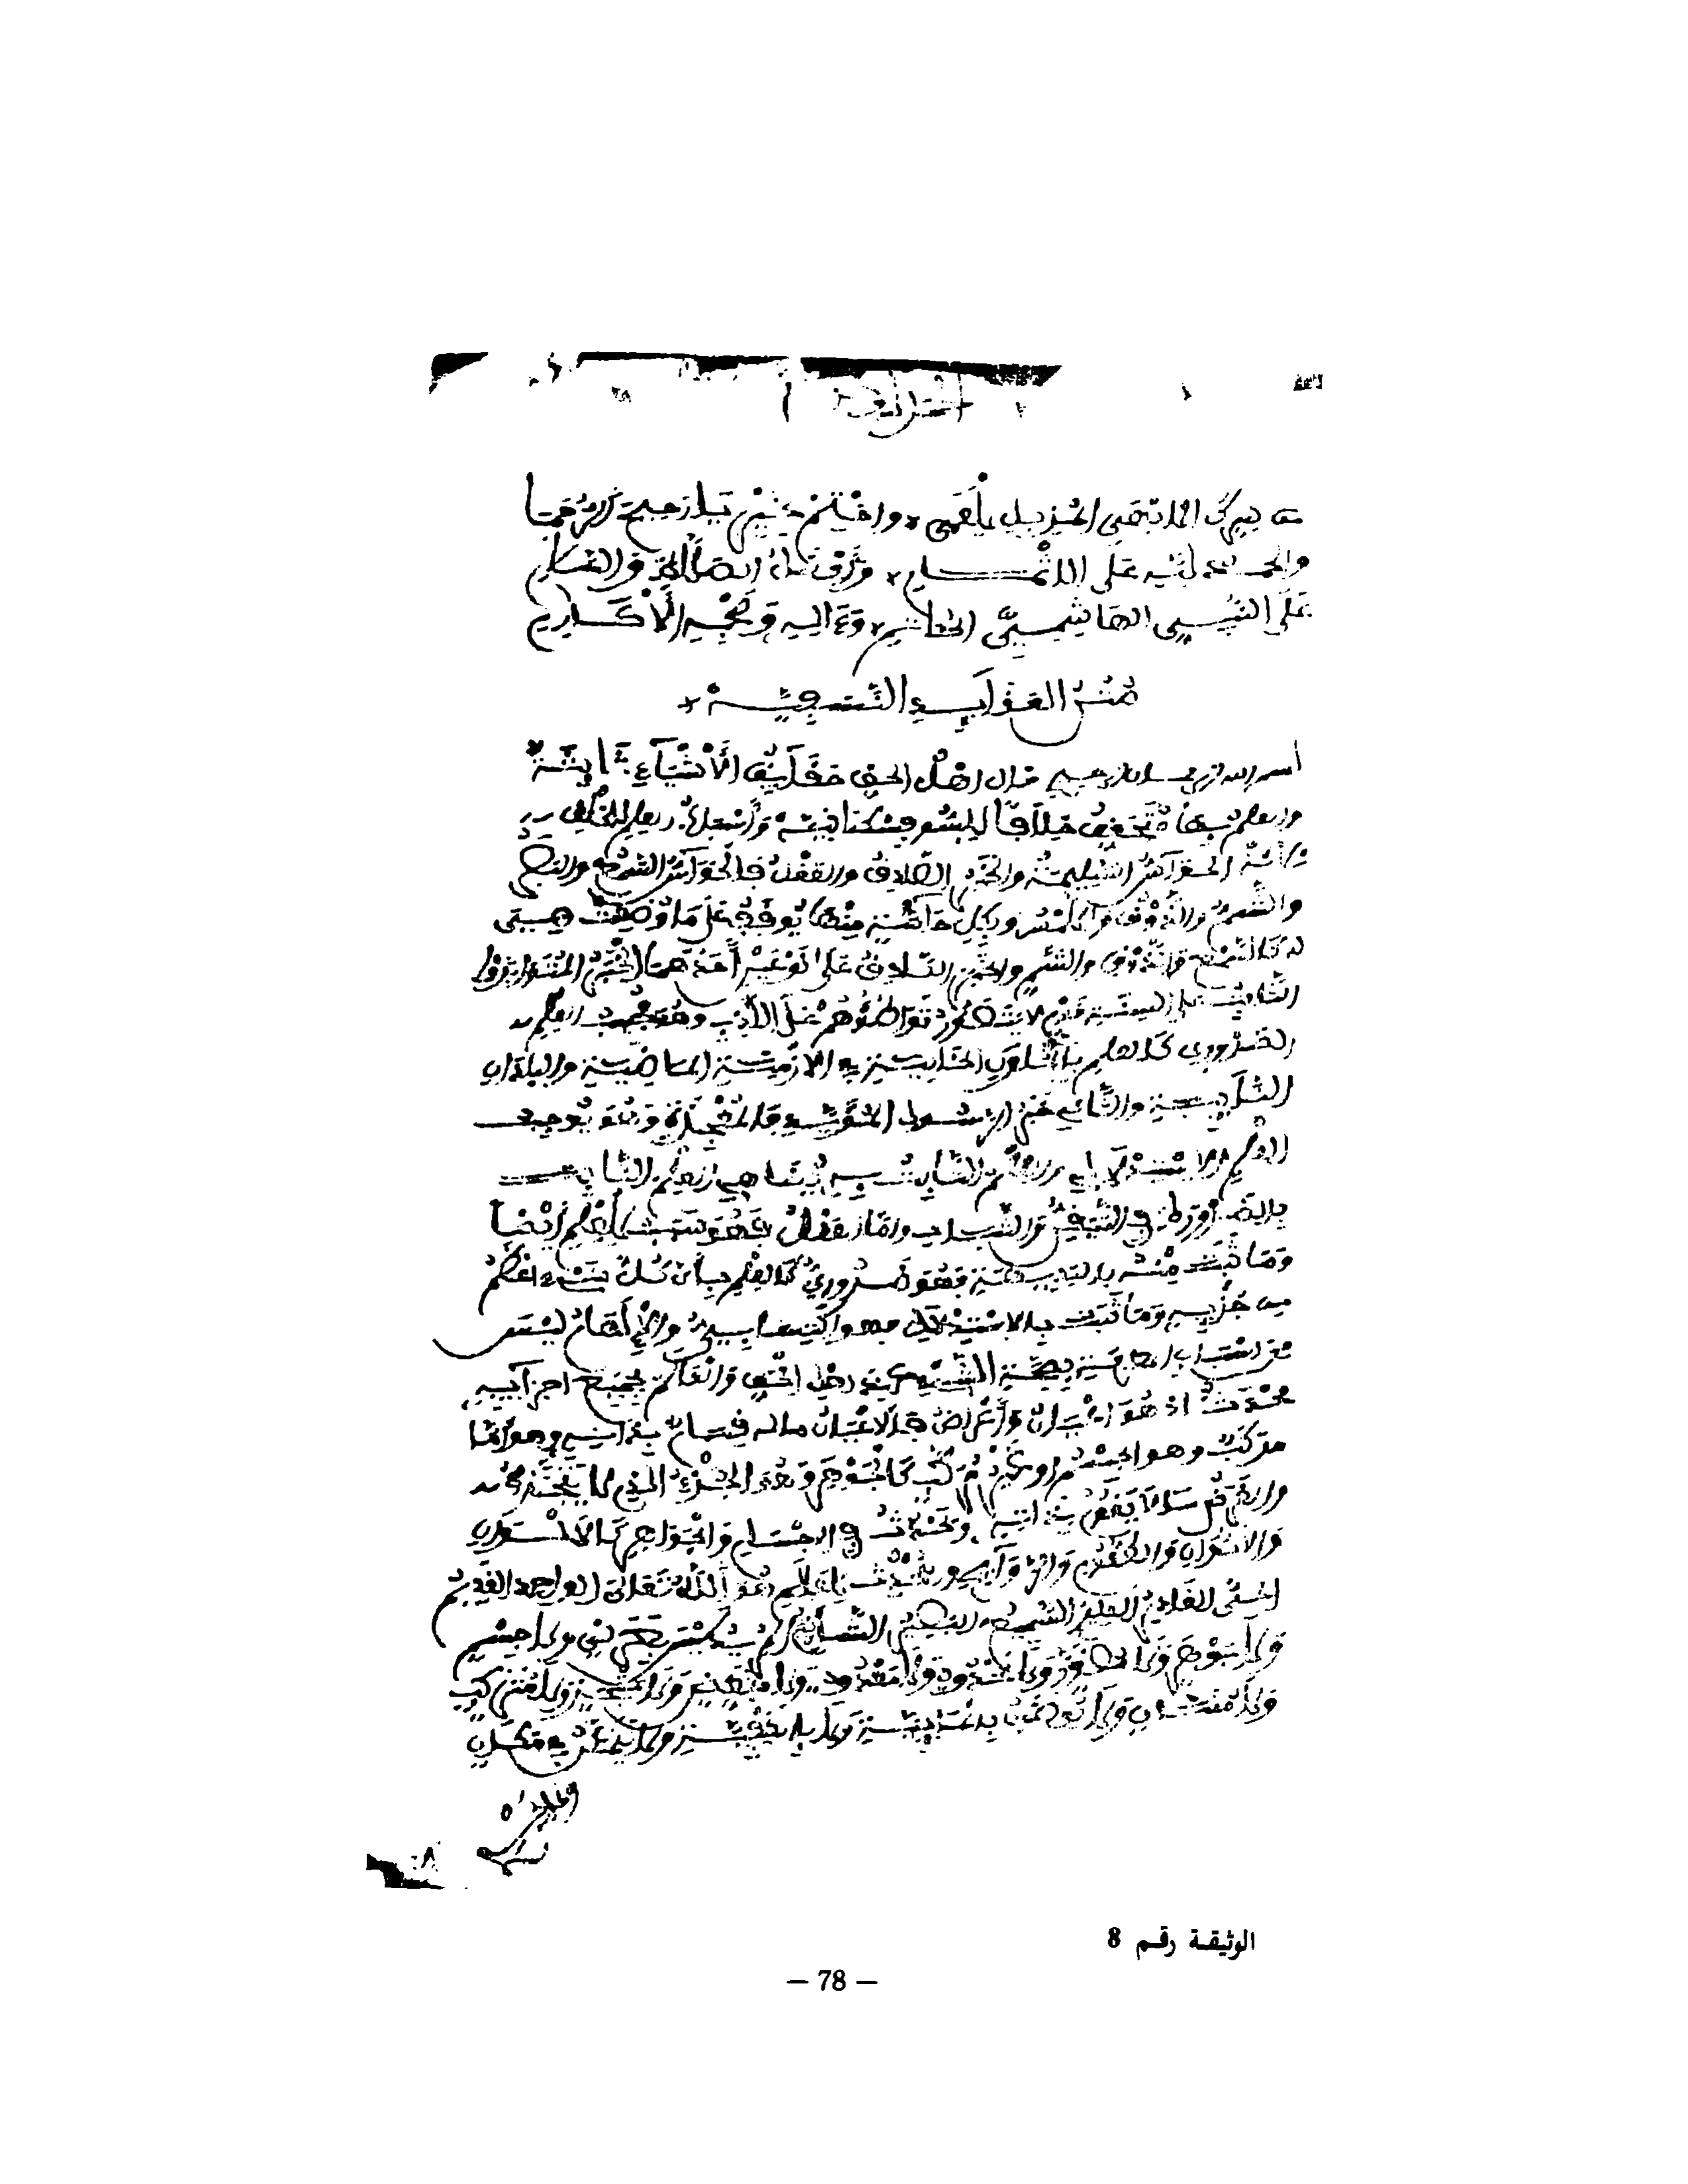 واختم بخير يا رحيم الرحما
والحمد لله على الاتمام وأفضل الصلاة والسلام
على النبي الهاشمي الخاتم وءاله وصحبه الأكارم
متن العقايد النسفية
بسم الله الرحمن الرحيم قال اهل الحق حقايق الأشياء ثابتة
والعلم بها متحقق خلافا للسوفسطائية وأسباب العلم للخلق
ثلاثة الحواس السليمة والخبر الصادق والعقل فالحواس السمع والبصر
والشم والذوق واللمس وبكل حاسة منها يوقف على ما وضعت هي
له كالسمع والذوق والشم والخبر الصادق على نوعين أحدهما الخبر المتواتر وهو
الثابت على السنة قوم لا يتصور تواطئوهم على الكذب وهو موجب للعلم
الضروري كالعلم بالملوك الخالية في الازمنة الماضية والبلدان
النايية والثاني خبر الرسول المؤيد بالمعجزة وهو يوجب
العلم الاستدلالي والعلم الثابت به يضاهي العلم الثابت
بالضرورة في التيقن والثبات واما العقل فهو سبب للعلم أيضا
وما ثبت منه بالبديهة فهو ضروري كالعلم بأن كل شيء اعظم
من جزيه وما ثبت بالاستدلال فهو اكتسابي والإلهام ليس
من اسباب المعرفة بصحة الشيء عند اهل الحق والعالم بجميع اجزايه
محدث اذ هو اعيان وأعراض فالاعيان ما له قيام بذاته وهو إما
مركب وهو الجسم او غير مركب كالجوهر وهو الجزء الذي لا يتجزء
والعرض ما لا يقوم بذاته ويحدث في الاجسام والجواهر كالالوان
والاكوان والطعوم والروايح والمحدث للعالم هو الله تعالى الواحد القديم
الحي القادر العليم السميع البصير الشاءي المريد ليس بعرض ولا جسم
ولا جوهر ولا مصور ولا محدود ولا معدود ولا متبعض ولا متجز ولا متركب
ولا متناه ولا يوصف بالماهية ولا بالكيفية ولا يتمكن في مكان
الوثيقة رقم 8
— 78 —